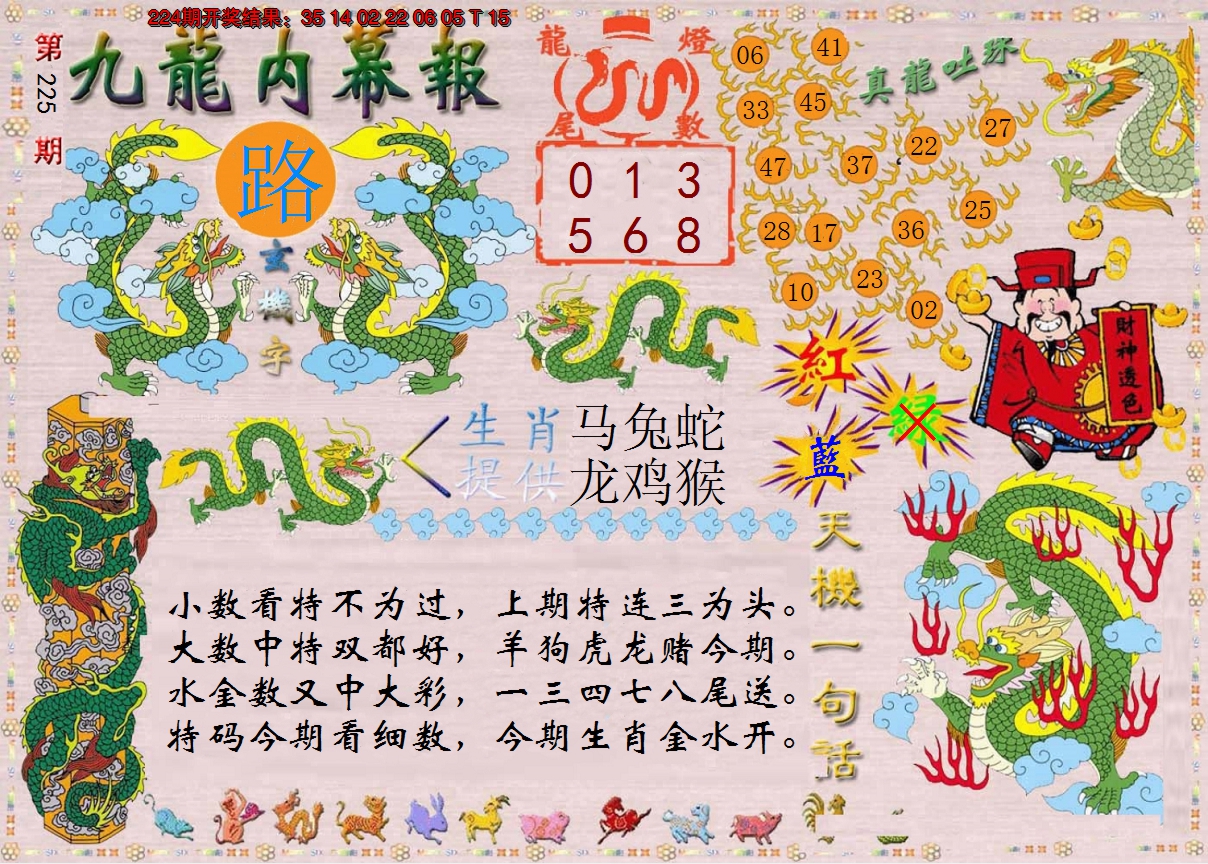 224期开奖结果：35 14 02 22 06 05 T 15
第225期
九龍内幕報
路
玄機字
龍燈尾數
0 1 3
5 6 8
真龍吐珠
06 41
33 45
47 37 22 27
28 17 36 25
10 23 02
財神透色
紅
绿
藍
生肖 马兔蛇
提供 龙鸡猴
天機一句話
小数看特不为过，上期特连三为头。
大数中特双都好，羊狗虎龙赌今期。
水金数又中大彩，一三四七八尾送。
特码今期看细数，今期生肖金水开。